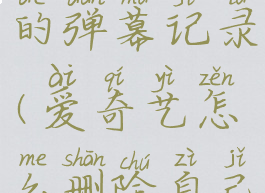 的弹幕记录
ài qí yì zěn
(爱奇艺怎
me shān chú zì jǐ
么删除自己